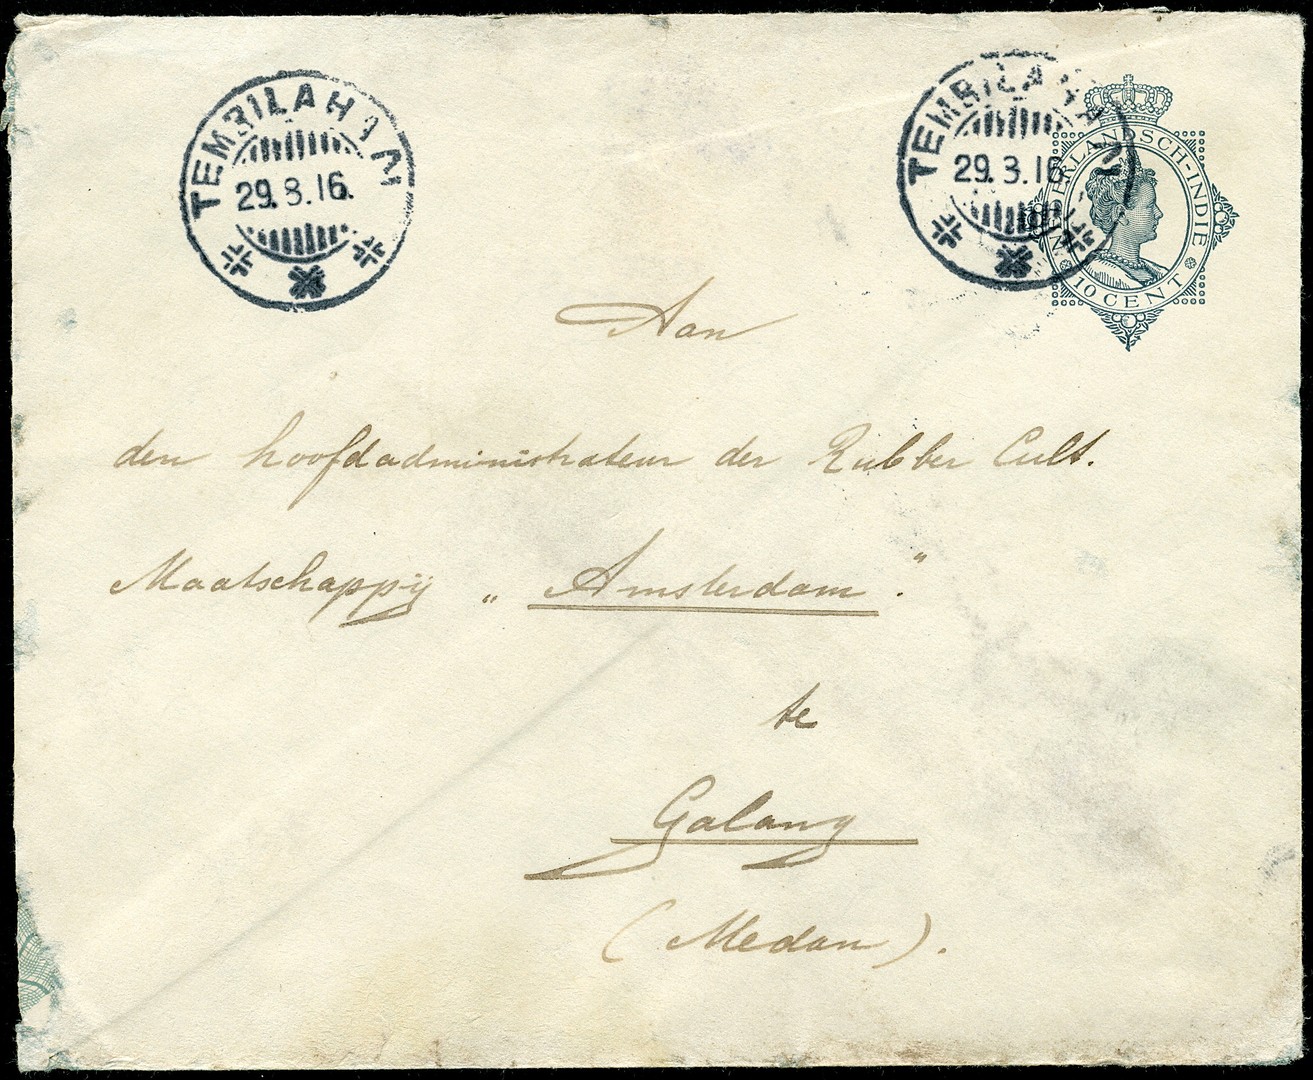 TEMBILAHAN
29.3.16.
TEMBILAHAN
29.3.16
NEDERLANDSCH-INDIE
10 CENT
Aan
den hoofdadministrateur der Rubber Cult.
Maatschappij „Amsterdam".
te
Galang
(Medan).